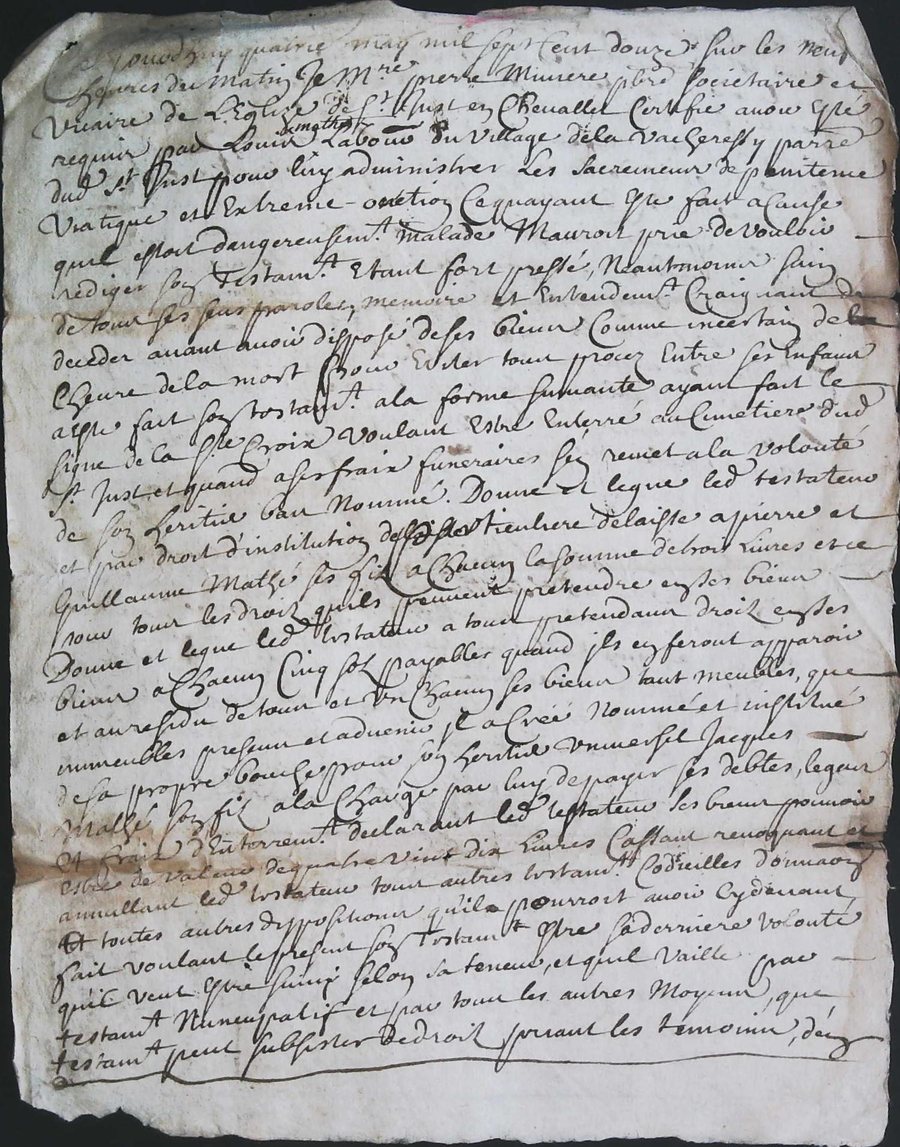 Ce jourdhuy quatrie may mil sept cent douze sur les neuf
heures du matin Je Mre pierre Muniere pbre societaire et
Vicaire de L'Eglise de St Just en Chevallet Certifie avoir este
requis par Louis Labouré du village de la vacheresse parre
mathé
dud St Just pour luy administrer Les sacremens de penitence
Viatique et Extreme-onction Ce quayant este fait a Cause
quil estoit dangereusemt malade Mauroit prié de vouloir
rediger son testamt Etant fort pressé, Neantmoins sain
de tous ses sens parole, memoire et Entendemt Craignant de
deceder avant avoir disposé de ses biens Comme incertain de la
lheure de la mort pour Eviter tous procez Entre ses Enfans
a este fait son testamt a la forme suivante ayant fait le
signe de la Ste Croix Voulant Estre Enterré au Cimetiere dud
St Just et quand a ses frais funeraires sen remet a la volonte
de son heritier bas Nommé. Donne et legue led testateur
et par droit d'institution particuliere delaisse a pierre et
Guillaume Mathé ses fils a Chacun la somme de trois Livres et ce
pour tous les droits quils peuvent pretendre en ses biens
Donne et legue led testateur a tous pretendans droit en ses
biens a Chacun Cinq sols payables quand ils en feront apparoir
et au residu de tous et un Chacun ses biens tant meubles, que
immeubles presens et advenir il a Créé Nommé et institué
de sa propre bouche pour son heritier Universel Jacques
Mathé son fils a la Charge par luy de payer ses debtes, legats
et frais d'Enterremt declarant led testateur ses biens pouvoir
estre de valeur de quatre vint dix Livres Cassant revoquant et
annullant led testateur tous autres testamts Codicilles donnaons
Et toutes autres dispositions qu'il pourroit avoir cy devant
fait voulant le present son testamt Estre sa derniere volonté
qu'il veut Estre suivy selon sa teneur, et quil vaille par
testamt Nuncupatif et par tous les autres Moyens, que
testamt peut subsister de droit priant les temoins, dén